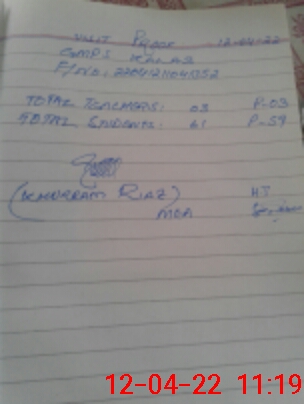 VISIT PROOF 12-04-22
GMPS KHLAS
F/NO: 22041211041352
TOTAL TEACHERS: 03 P-03
TOTAL STUDENTS: 61 P-59
(KHURRAM RIAZ) HT
MEA
12-04-22 11:19